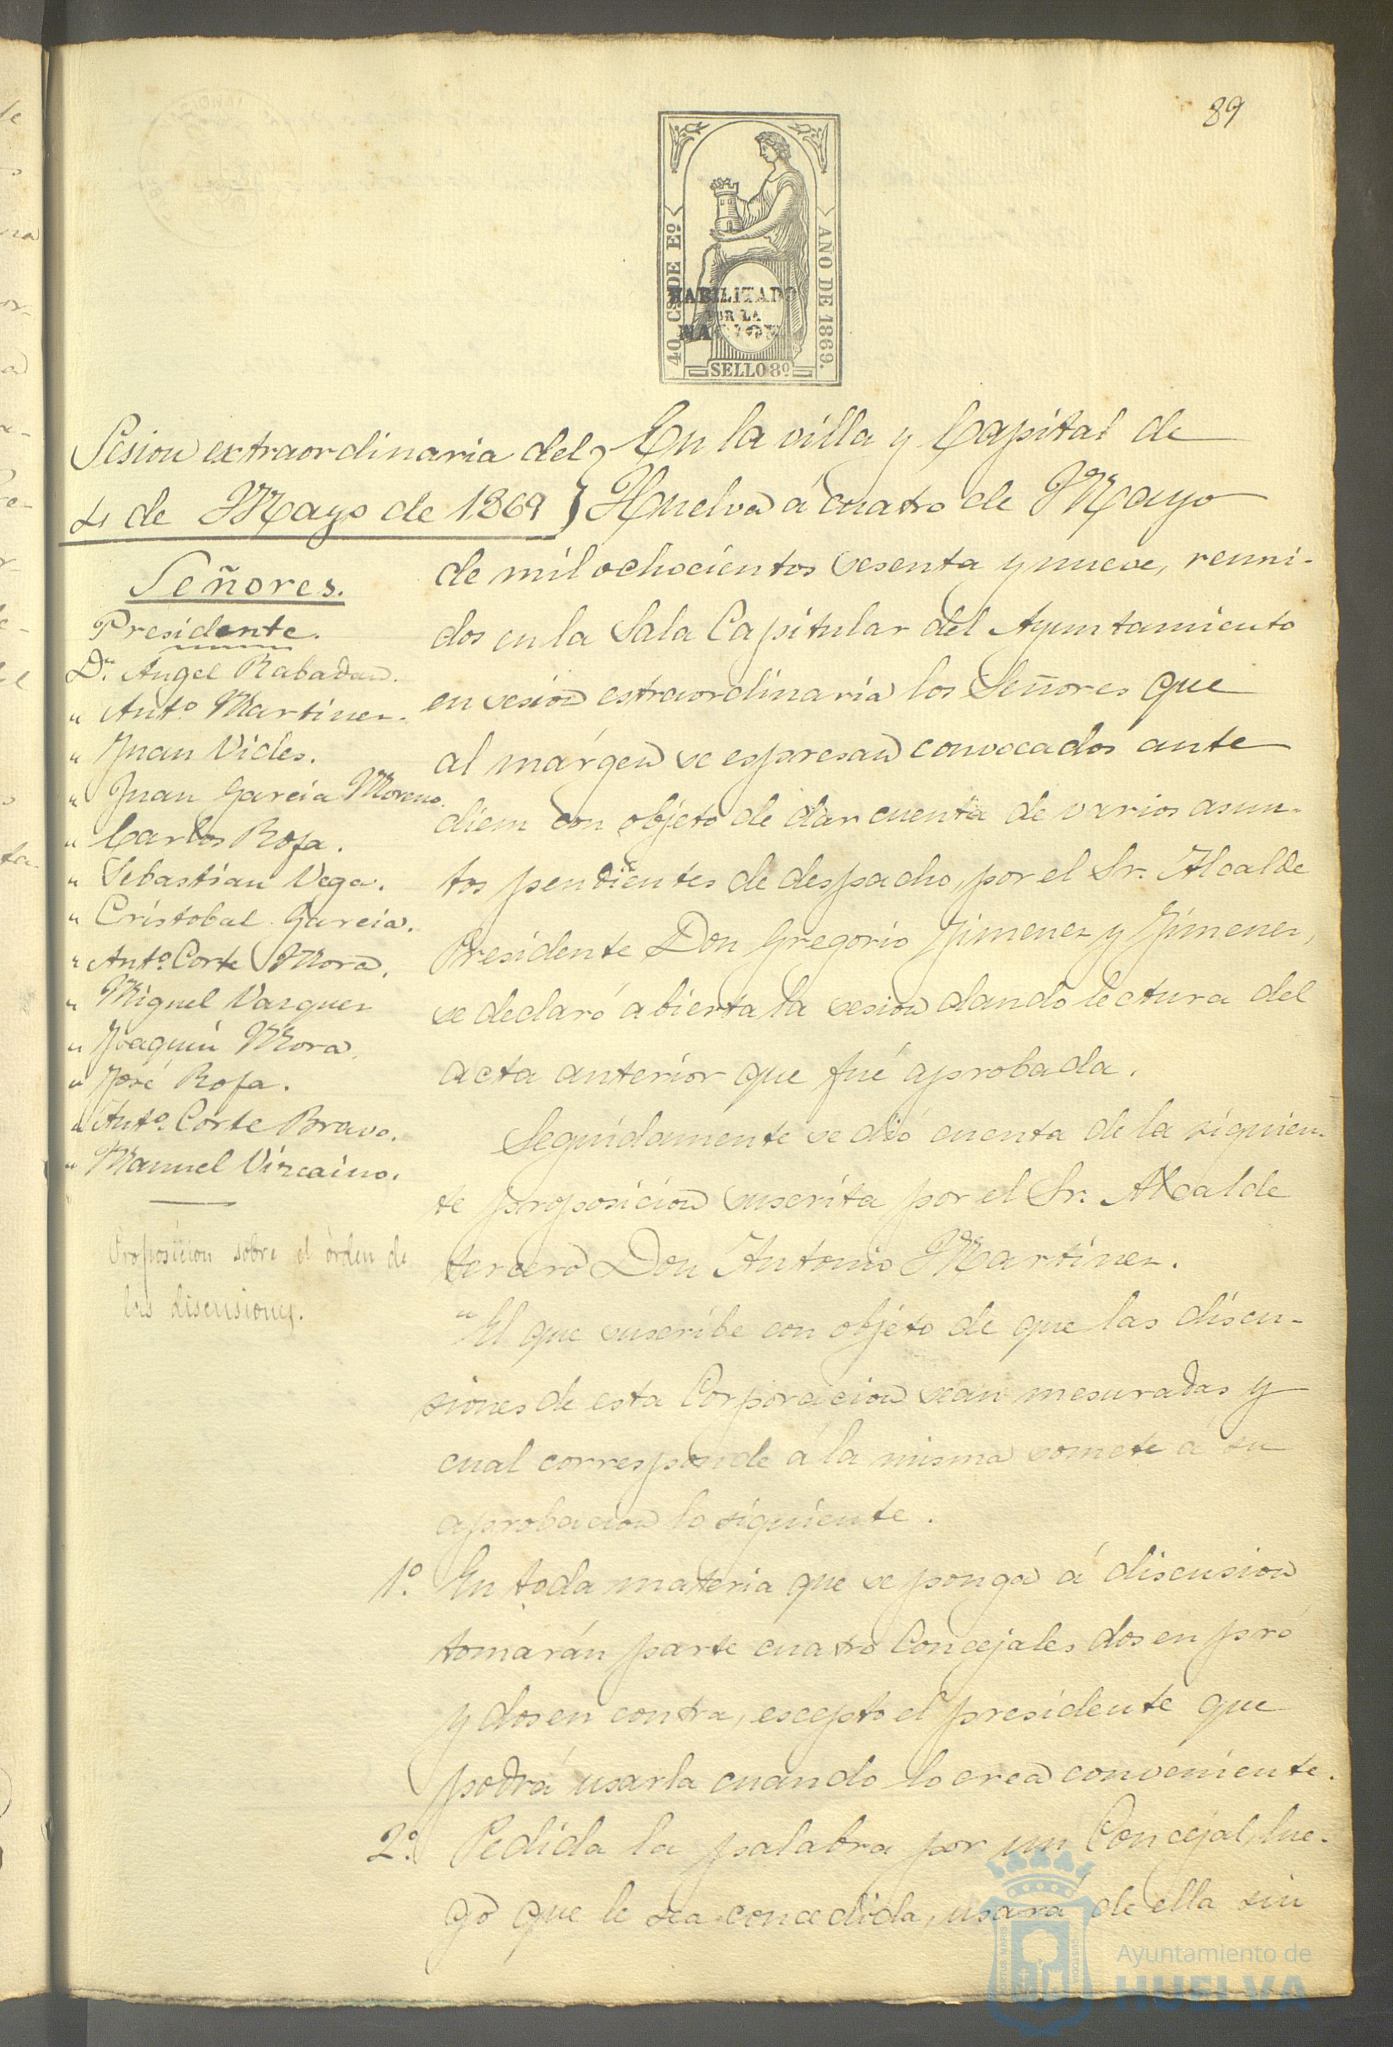 89
40 CS DE Eº
AÑO DE 1869.
HABILITADO
POR LA
NACION
SELLO 8º
Sesion extraordinaria del
4 de Mayo de 1869
Señores.
Presidente.
Dn. Angel Rabadan.
" Antº Martinez.
" Juan Vides.
" Juan Garcia Moreno.
" Carlos Rofa.
" Sebastian Vega.
" Cristobal Garcia.
" Antº Corte Mora.
" Miguel Vazquez
" Joaquin Mora.
" José Rofa.
" Antº Corte Bravo.
" Manuel Vizcaino.
Proposicion sobre el órden de
las discusiones.
En la villa y Capital de
Huelva á cuatro de Mayo
de mil ochocientos sesenta y nueve, reuni-
dos en la Sala Capitular del Ayuntamiento
en sesion estraordinaria los Señores que
al márgen se espresan convocados ante
diem con objeto de dar cuenta de varios asun-
tos pendientes de despacho, por el Sr. Alcalde
Presidente Don Gregorio Jimenez y Jimenez,
se declaró abierta la sesion dando lectura del
acta anterior que fué aprobada.
Seguidamente se dió cuenta de la siguien-
te proposicion suscrita por el Sr. Alcalde
tercero Don Antonio Martinez.
"El que suscribe con objeto de que las discu-
siones de esta Corporacion sean mesuradas y
cual corresponde á la misma somete á su
aprobacion lo siguiente.
1º. En toda materia que se ponga á discusion
tomarán parte cuatro Concejales dos en pró
y dos en contra, escepto el presidente que
podrá usarla cuando lo crea conveniente.
2º. Pedida la palabra por un Concejal, lue-
go que le sea concedida, usará de ella sin
Ayuntamiento de
HUELVA